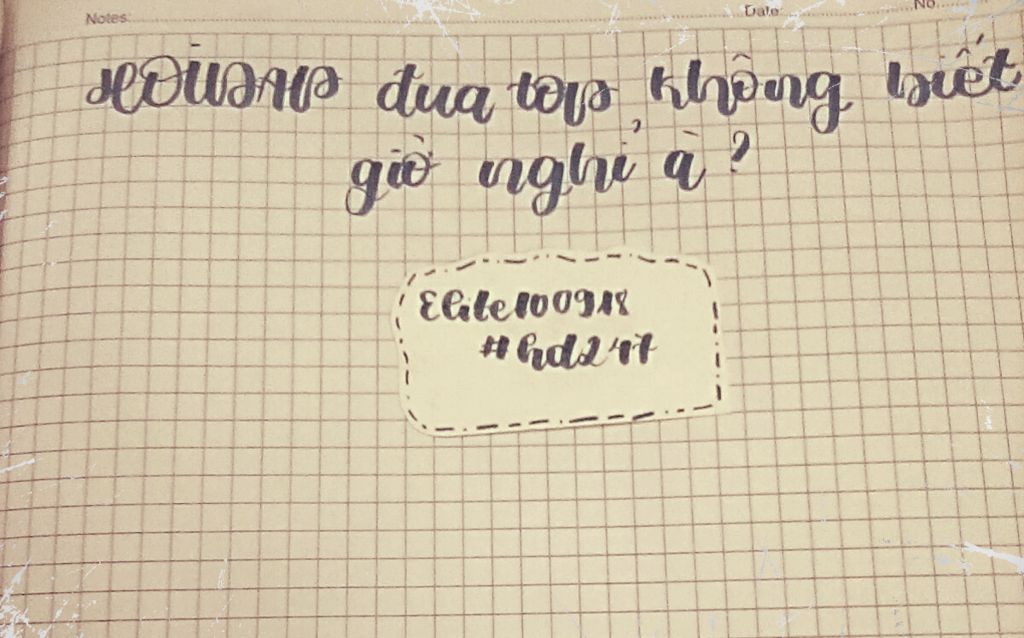 Notes: Date: No
HOIDAP đua top, không biết
giờ nghỉ à?
Elite100918
#hd247